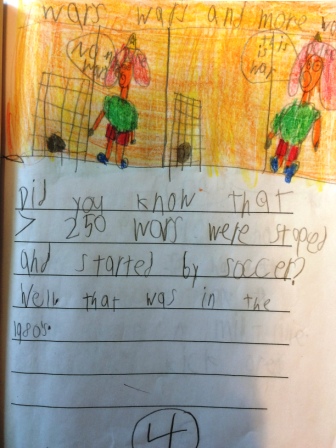 wars, wars and more
no
war
it is
war
Did you know that
> 250 wars were stoped
and started by soccer?
Well that was in the
1980s.
4